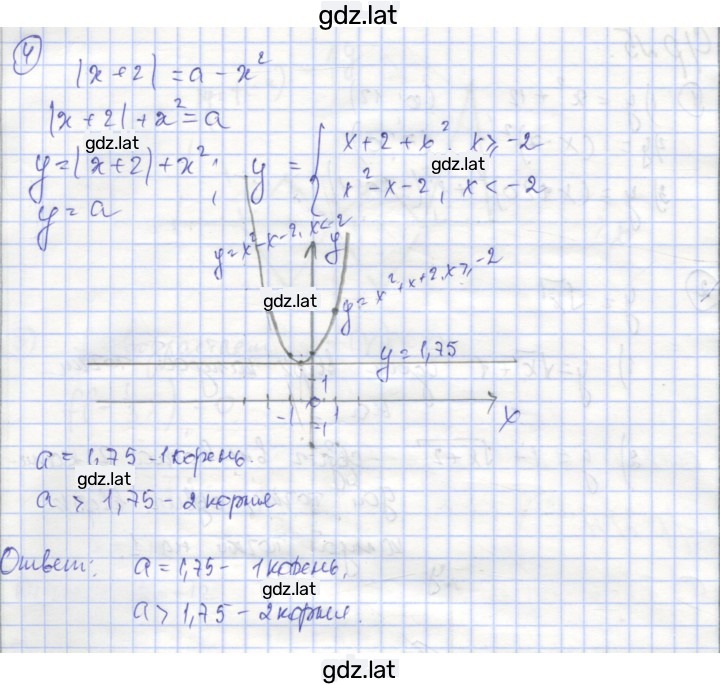 gdz.lat
4
|x+2| = a - x²
|x+2| + x² = a
gdz.lat
y = |x+2| + x² ; y = { x + 2 + x², x ≥ -2
gdz.lat
y = a ; x² - x - 2, x < -2
y = x² - x - 2, x < -2
y
gdz.lat
y = x² + x + 2, x ≥ -2
y = 1,75
1
-1 0 1 x
-1
a = 1,75 - 1 корень.
gdz.lat
a > 1,75 - 2 корня
Ответ: a = 1,75 - 1 корень,
gdz.lat
a > 1,75 - 2 корня.
gdz.lat